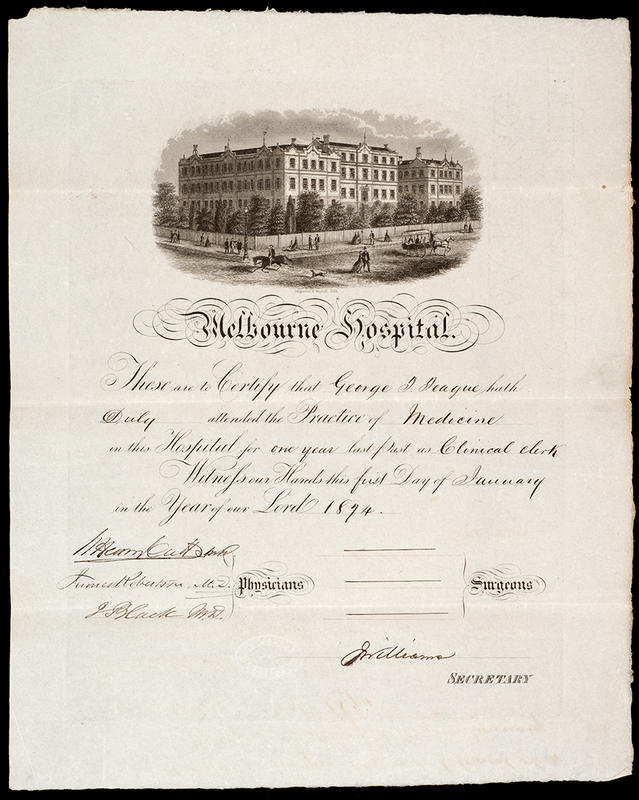 Melbourne Hospital.
These are to Certify that George T Teague hath
Duly attended the Practice of Medicine
in this Hospital for one year last Past as Clinical Clerk
Witness our Hands this first Day of January
in the Year of our Lord 1874.
W Henry Cutts M.D.
James Robertson M.D.
J Black M.D.
Physicians
Surgeons
J Williams
SECRETARY